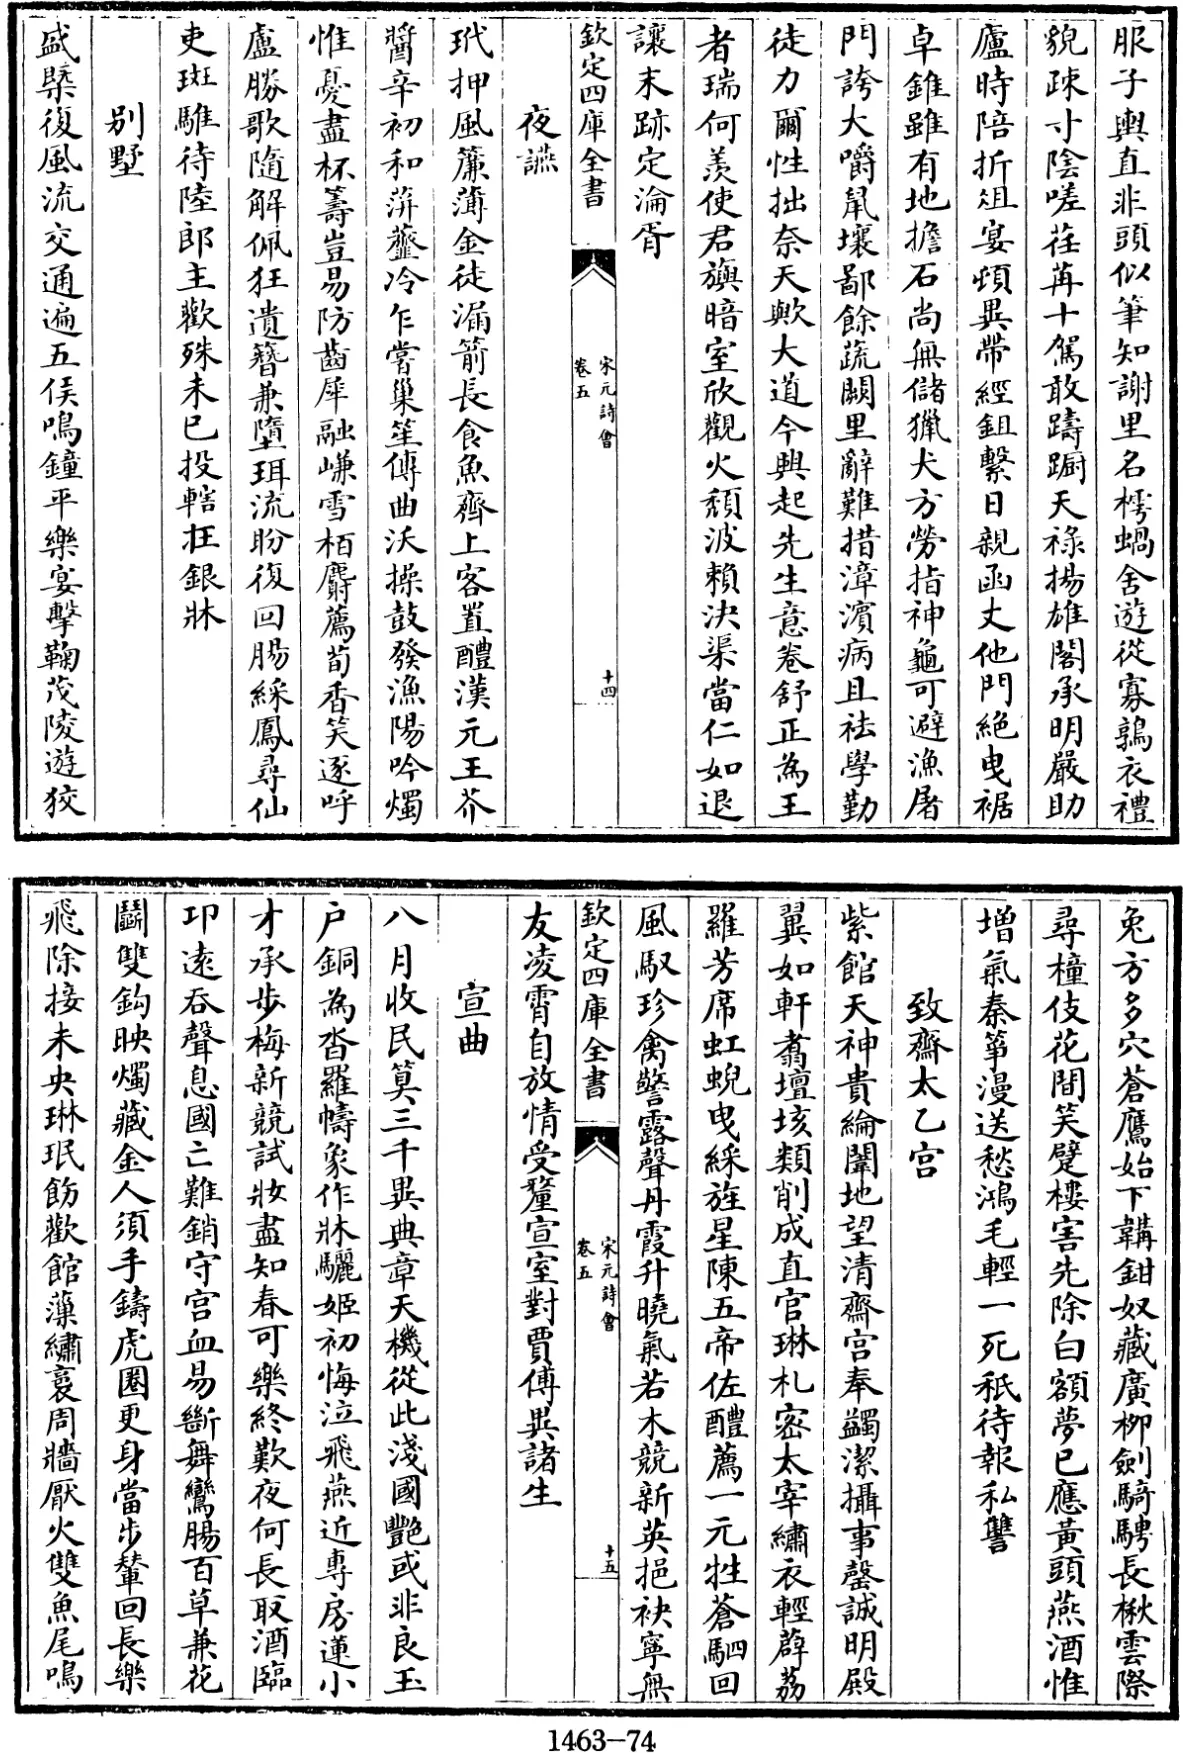 服子輿直非頭似筆知謝里名樗蝸舍遊從寡鶉衣禮
貌疎寸陰嗟荏苒十駕敢躊躕天祿揚雄閣承明嚴助
廬時陪折俎宴頓異帶經鉏繫日親函丈他門絶曳裾
卓錐雖有地擔石尚無儲獵犬方勞指神龜可避漁屠
門誇大嚼鼠壤鄙餘蔬闕里辭難措漳濱病且祛學勤
徒力爾性拙奈天歟大道今興起先生意卷舒正為王
者瑞何羨使君旟暗室欣觀火頽波賴決渠當仁如退
讓末跡定淪胥
欽定四庫全書
宋元詩會
卷五
十四
夜讌
玳押風簾薄金徒漏箭長食魚齊上客置醴漢元王芥
醬辛初和蓱虀冷乍嘗巢笙傳曲沃操鼓發漁陽吟燭
惟憂盡杯籌豈易防齒犀融嵰雪栢麝薦荀香笑逐呼
盧勝歌隨解佩狂遺簪兼墮珥流盼復回腸綵鳳尋仙
吏斑騅待陸郎主歡殊未已投轄在銀牀
別墅
盛槩復風流交通遍五侯鳴鐘平樂宴擊鞠茂陵遊狡
兔方多穴蒼鷹始下韝鉗奴藏廣柳劍騎騁長楸雲際
尋橦伎花間笑躄樓害先除白額夢已應黃頭燕酒惟
增氣秦箏漫送愁鴻毛輕一死秖待報私讐
致齋太乙宮
紫館天神貴綸闈地望清齋宮奉蠲潔攝事罄誠明殿
翼如軒翥壇垓類削成直官琳札密太宰繡衣輕薜荔
羅芳席虹蜺曳綵旌星陳五帝佐醴薦一元牲蒼駟回
風馭珍禽警露聲丹霞升曉氣若木競新英挹袂寧無
欽定四庫全書
宋元詩會
卷五
十五
友凌霄自放情受釐宣室對賈傅異諸生
宣曲
八月收民筭三千異典章天機從此淺國艷或非良玉
户銅為沓羅幬象作牀驪姬初悔泣飛燕近專房蓮小
才承步梅新競試妝盡知春可樂終歎夜何長取酒臨
卭遠吞聲息國亡難銷守宮血易斷舞鸞腸百草兼花
鬭雙鈎映燭藏金人須手鑄虎圈更身當步輦回長樂
飛除接未央琳珉飭歡館藻繡裛周牆厭火雙魚尾鳴
1463-74